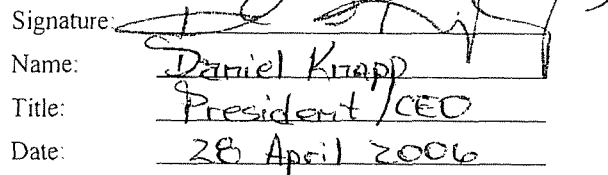 Signature:
Name: Daniel Knapp
Title: President/CEO
Date: 28 April 2006